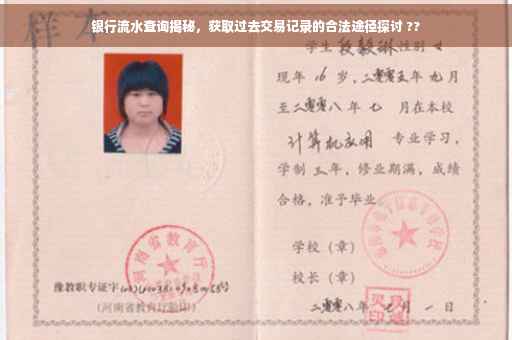 银行流水查询揭秘，获取过去交易记录的合法途径探讨 ??
样本
学生段毅琳性别女
现年16岁，二零零五年九月
至二零零八年七 月在本校
计算机应用 专业学习，
学制三年，修业期满，成绩
合格，准予毕业
学校（章）
校长（章）
二零零八年 月一日
河南省教育厅
豫教职专证字
（河南省教育厅验印）